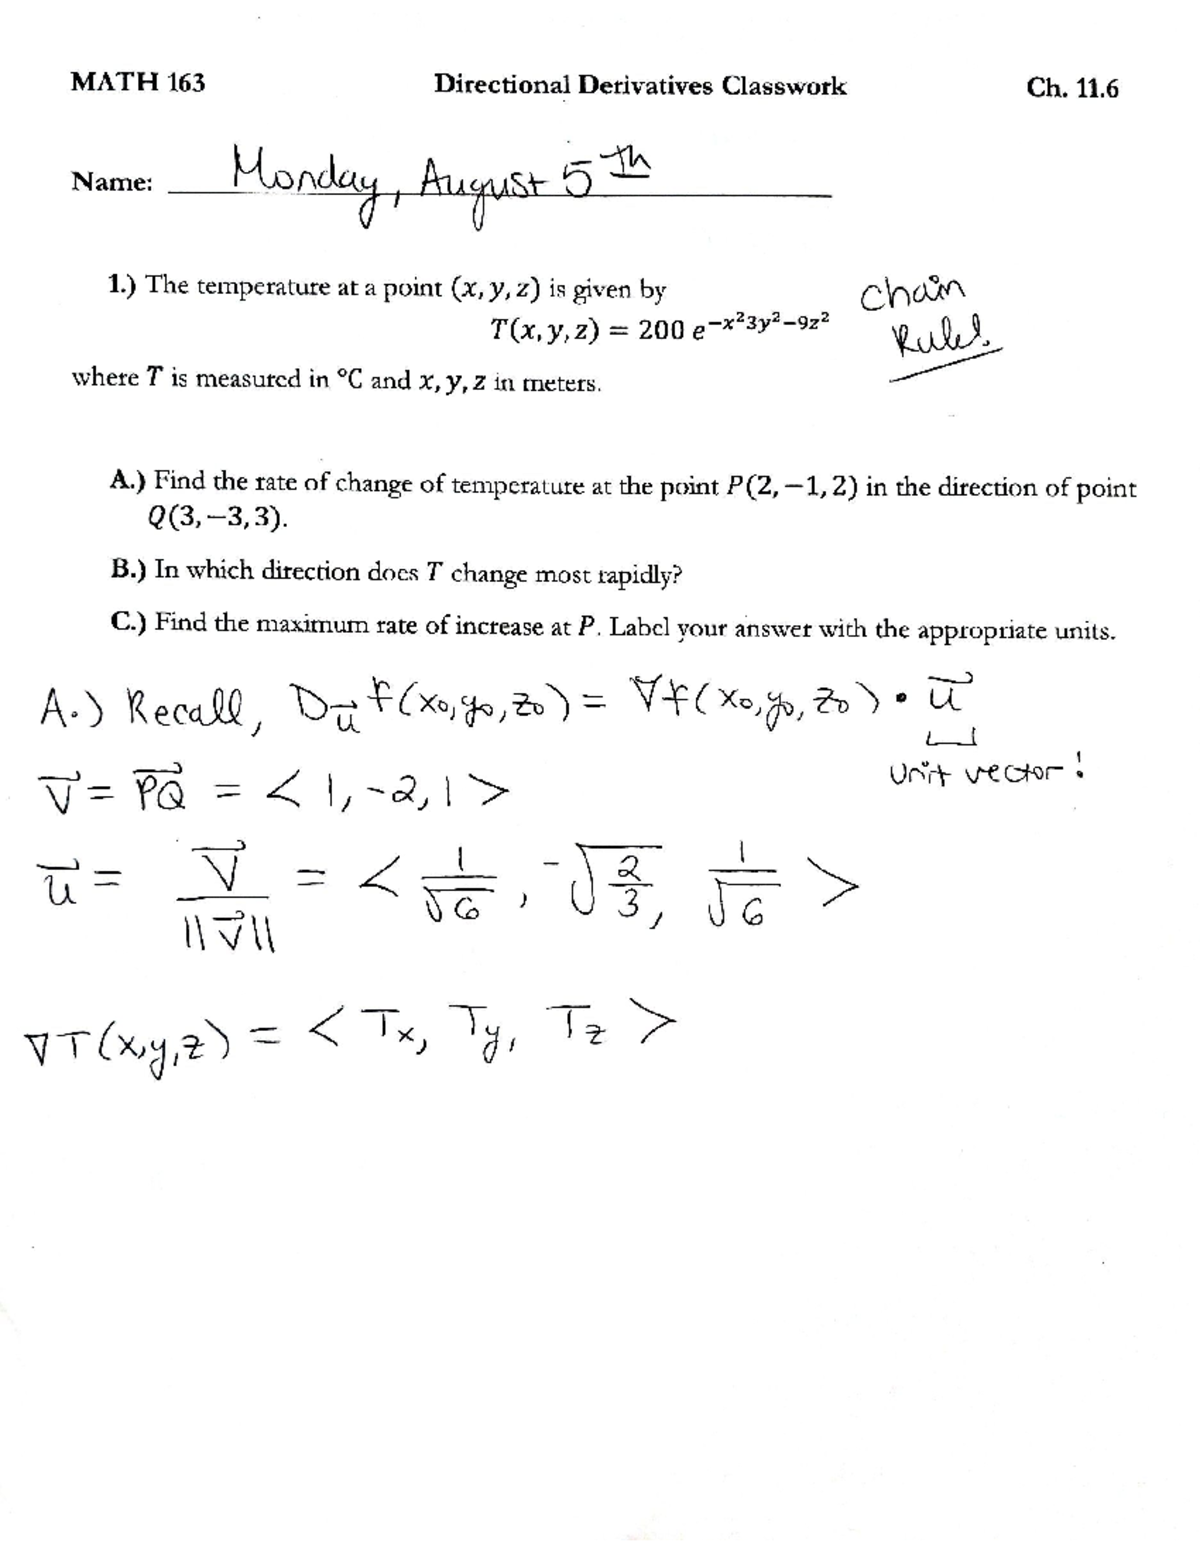 MATH 163 Directional Derivatives Classwork Ch. 11.6
Name: Monday, August 5th
1.) The temperature at a point (x, y, z) is given by
T(x, y, z) = 200 e^{-x²3y²-9z²}
Chain
Rule!
where T is measured in °C and x, y, z in meters.
A.) Find the rate of change of temperature at the point P(2, −1, 2) in the direction of point
Q(3, −3, 3).
B.) In which direction does T change most rapidly?
C.) Find the maximum rate of increase at P. Label your answer with the appropriate units.
A.) Recall, D_u⃗ f(x₀, y₀, z₀) = ∇f(x₀, y₀, z₀) • u⃗
unit vector!
v⃗ = PQ⃗ = < 1, -2, 1 >
u⃗ = v⃗ / ||v⃗|| = < 1/√6, -√(2/3), 1/√6 >
∇T(x,y,z) = < Tx, Ty, Tz >